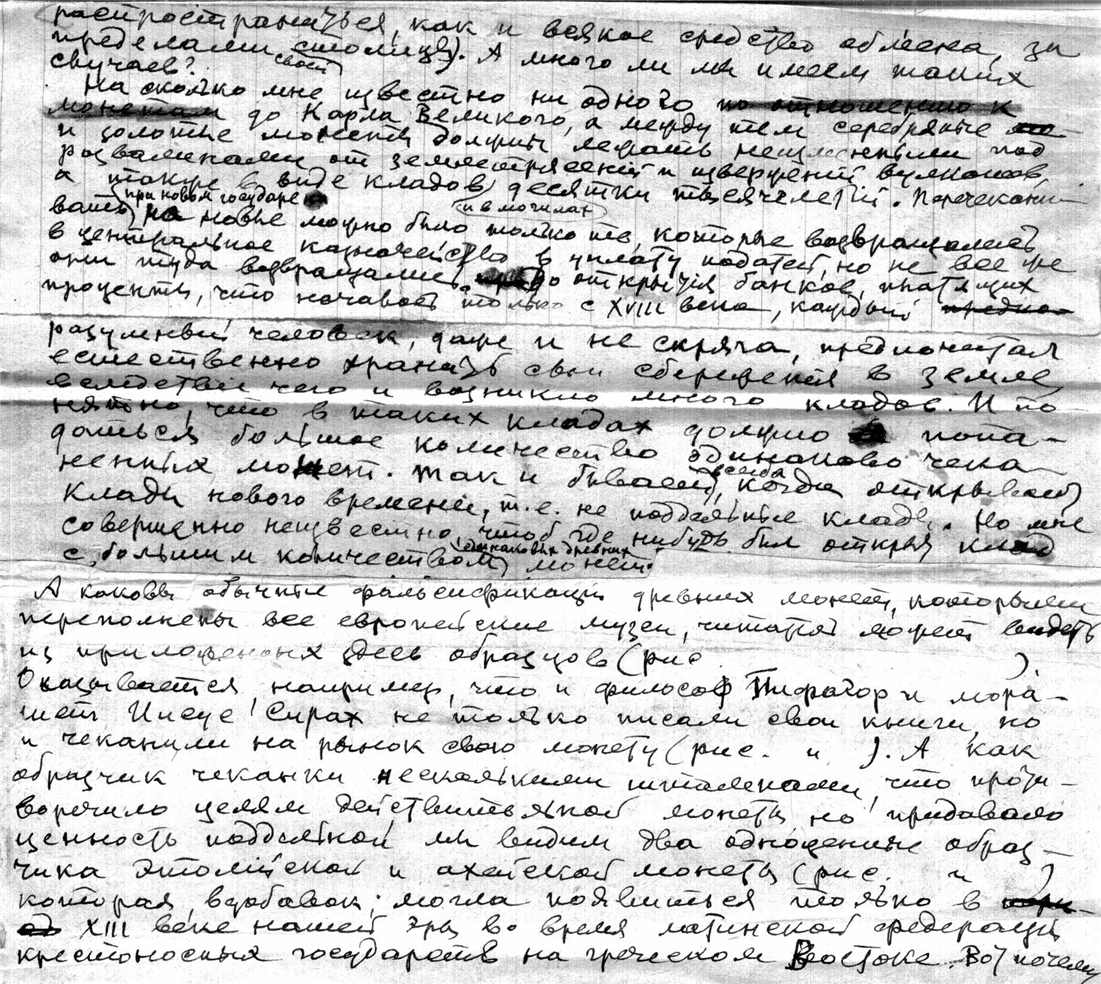 распространяться, как и всякое средство обмена, за
пределами своей столицы). А много ли мы имеем таких
случаев?
На сколько мне известно ни одного по отношению к
монетам до Карла Великого, а между тем серебряные
и золотые монеты должны лежать неизменными под
развалинами от землетрясений и извержений вулканов,
а также в виде кладов и в могилах десятки тысячелетий. Перечекани-
вать при новом государе на новые можно было только те, которые возвращались
в центральное казначейство в уплату податей, но не все же
они туда возвращались. До открытия банков, платящих
проценты, что началось только с XVIII века, каждый
разумный человек, даже и не скряга, предпочитал
естественно хранить свои сбережения в земле,
вследствие чего и возникло много кладов. И по-
нятно, что в таких кладах должно попа-
даться большое количество одинаково чека-
ненных монет. Так и бывает всегда, когда открывают
клады нового времени, т.е. не поддельные клады. Но мне
совершенно неизвестно, чтоб где нибудь был открыт клад
с большим количеством одинаковых древних монет.
А каковы обычные фальсификации древних монет, которыми
переполнены все европейские музеи, читатель может видеть
из приложенных здесь образцов (рис. ).
Оказывается, например, что и философ Пифагор и мора-
лист Иисус Сирах не только писали свои книги, но
и чеканили на рынок свою монету (рис. и ). А как
образчик чеканки несколькими штампами, что проти-
воречило целям действительной монеты, но придавало
ценность поддельной мы видим два одноценные образ-
чика Этолийской и ахейской монеты (рис. и )
которая, вдобавок, могла появиться только в
XIII веке нашей эры во время латинской федерации
крестоносных государств на греческом Востоке. Вот почему